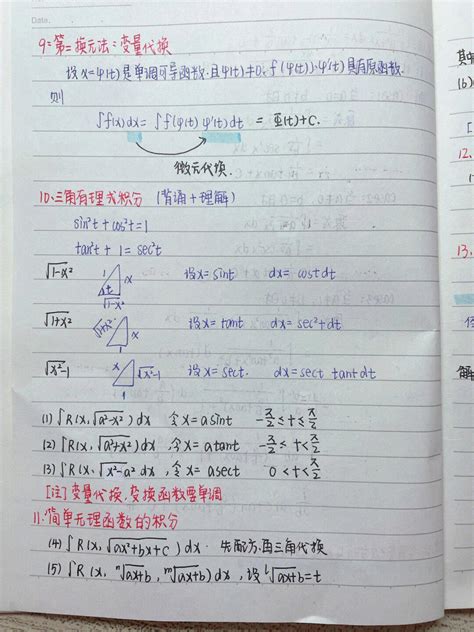 Date.
9、第二换元法:变量代换
设x=φ(t)是单调可导函数,且φ'(t)≠0,f(φ(t))·φ'(t)具有原函数.
则
∫f(x)dx=∫f(φ(t)) φ'(t)dt = Φ(t)+C.
微元代换.
10、三角有理式积分 (背诵+理解)
sin²t+cos²t=1
tan²t+1=sec²t
√1-x² 1 x t √1-x² 设x=sint dx=costdt
√1+x² √1+x² x 1 设x=tant dx=sec²tdt
√x²-1 x √x²-1 1 设x=sect. dx=sect tantdt
(1) ∫R(x,√a²-x²)dx 令x=asint -π/2≤t≤π/2
(2) ∫R(x,√a²+x²)dx ,令x=atant -π/2≤t≤π/2
(3) ∫R(x,√x²-a² dx ,令x=asect 0<t<π/2
[注]变量代换,变换函数要单调
11、简单无理函数的积分
(4) ∫R(x,√ax²+bx+c)dx. 先配方,再三角代换
(5) ∫R(x, ⁿ√ax+b, ᵐ√ax+b)dx,设 ˡ√ax+b=t
其中
(6)
12.
13.
解